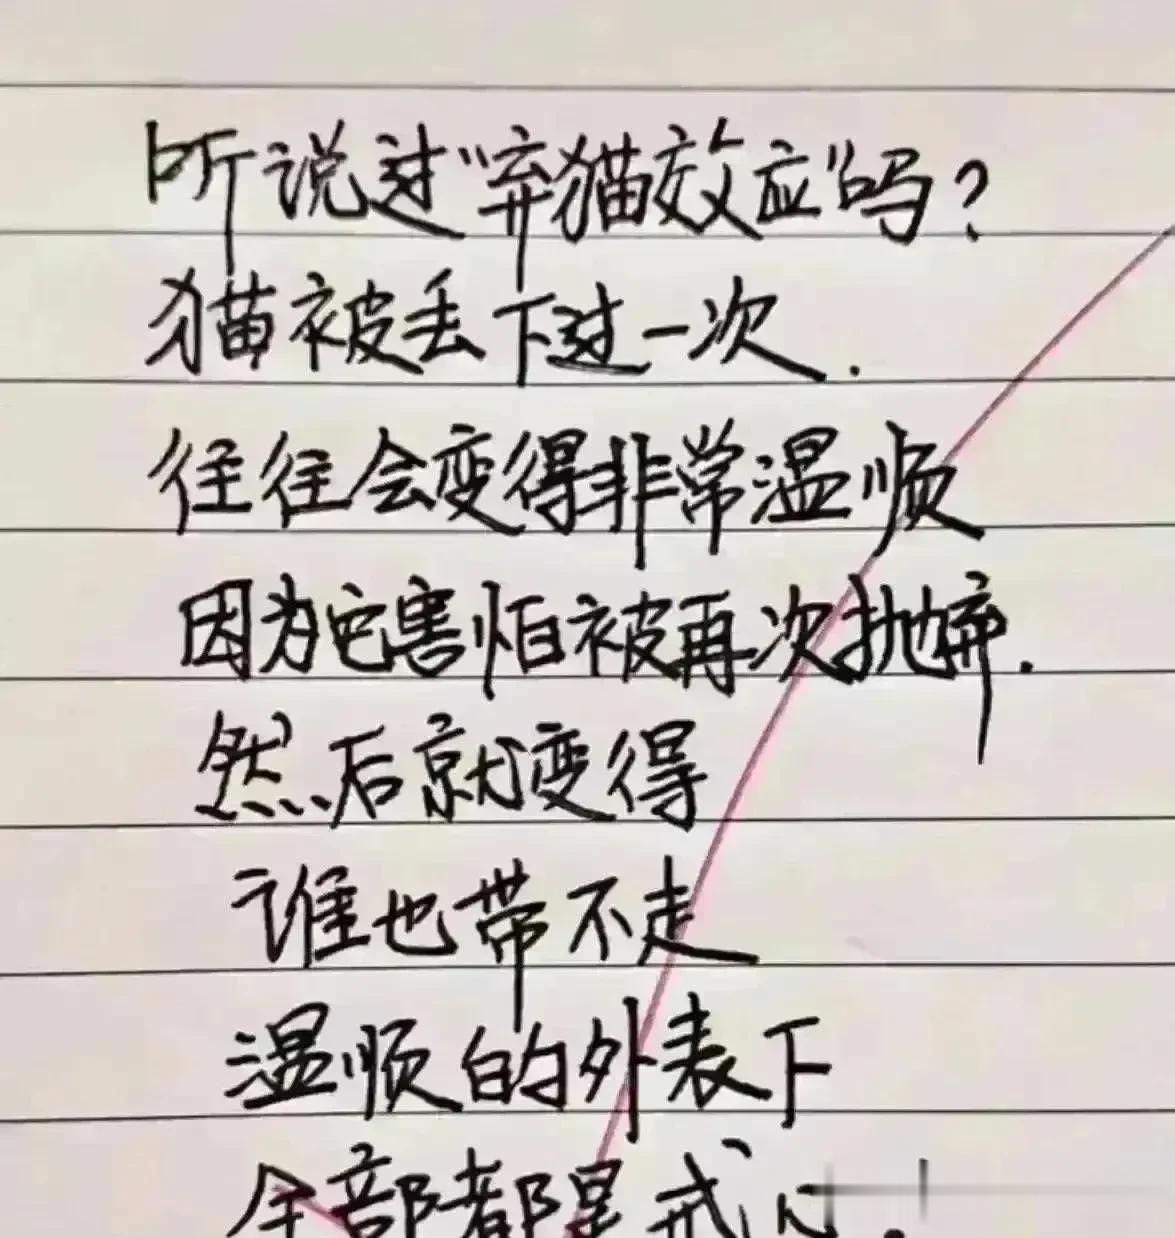 听说过"弃猫效应"吗?
猫被丢下过一次.
往往会变得非常温顺
因为它害怕被再次抛弃.
然后就变得
谁也带不走
温顺的外表下
全部都是戒心.